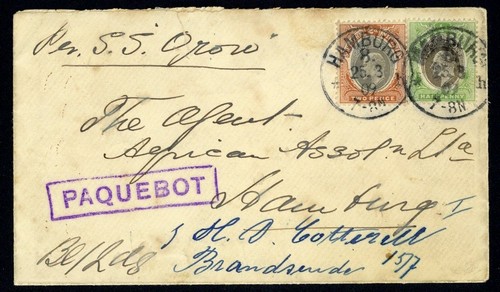 Per S.S. Oron
HAMBURG
25.3
7-8N
TWO PENCE
HAMBURG
7-8N
HALF PENNY
The Agent
African Assoc.n Ltd
PAQUEBOT
Hamburg I
H. D. Cotterell
Brandsende 15/17